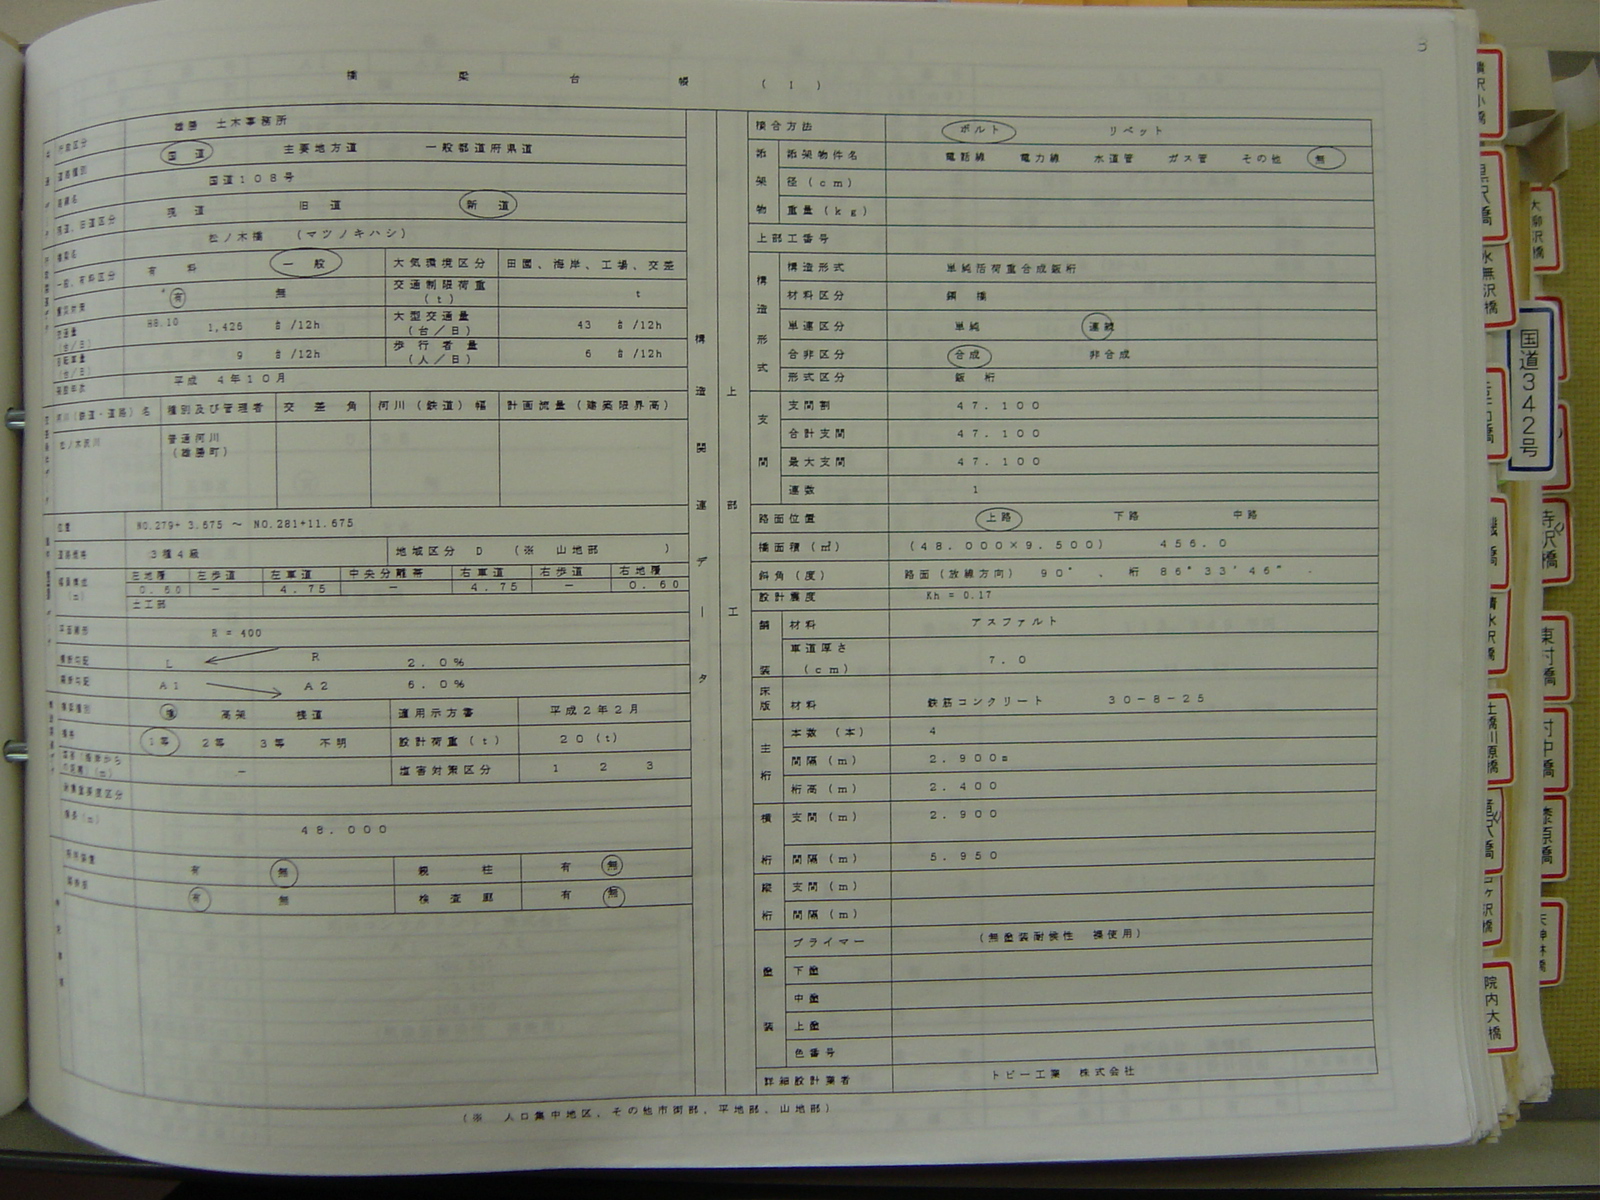 橋 梁 台 帳 ( 1 )
行政区分 雄勝 土木事務所
道路種別 国 道 主要地方道 一般都道府県道
路線名 国道108号
現道、旧道区分 現 道 旧 道 新 道
橋梁名 松ノ木橋 (マツノキハシ)
一般、有料区分 有 料 一 般 大気環境区分 田園、海岸、工場、交差
有 無 交通制限荷重(t) t
交通量(台/日) H8.10 1,426 台/12h 大型交通量(台/日) 43 台/12h
自転車量(台/日) 9 台/12h 歩行者量(人/日) 6 台/12h
平成 4年10月
河川(鉄道・道路)名 種別及び管理者 交 差 角 河川(鉄道)幅 計画流量(建築限界高)
普通河川(雄勝町)
位置 NO.279+ 3.675 ~ NO.281+11.675
道路規格 3種4級 地域区分 D (※ 山地部 )
幅員構成(m) 左地覆 左歩道 左車道 中央分離帯 右車道 右歩道 右地覆
0.60 - 4.75 - 4.75 - 0.60
土工部
平面線形 R = 400
横断勾配 L R 2.0%
縦断勾配 A1 A2 6.0%
橋梁種別 橋 高架 桟道 適用示方書 平成2年2月
橋格 1等 2等 3等 不明 設計荷重(t) 20(t)
- 塩害対策区分 1 2 3
橋長(m) 48.000
有 無 親 柱 有 無
有 無 検 査 廊 有 無
構造関連データ
上部工
接合方法 ボルト リベット
添架物 添架物件名 電話線 電力線 水道管 ガス管 その他 無
径(cm)
重量(kg)
上部工番号
構造形式 構造形式 単純活荷重合成鈑桁
材料区分 鋼 橋
単連区分 単純 連続
合非区分 合成 非合成
形式区分 鈑 桁
支間 支間割 47.100
合計支間 47.100
最大支間 47.100
連数 1
路面位置 上路 下路 中路
橋面積(㎡) (48.000×9.500) 456.0
斜角(度) 路面(放線方向) 90° 、 桁 86°33'46"
設計震度 Kh = 0.17
舗装 材料 アスファルト
車道厚さ(cm) 7.0
床版 材料 鉄筋コンクリート 30-8-25
主桁 本数 (本) 4
間隔(m) 2.900m
桁高(m) 2.400
横桁 支間(m) 2.900
間隔(m) 5.950
縦桁 支間(m)
間隔(m)
塗装 プライマー (無塗装耐候性 裸使用)
下塗
中塗
上塗
色番号
詳細設計業者 トピー工業 株式会社
(※ 人口集中地区、その他市街部、平地部、山地部)
黒沢橋
水無沢橋
清水沢橋
土橋川原橋
院内大橋
大柳沢橋
国道342号
寺沢橋
東村橋
村中橋
漆原橋
天神林橋